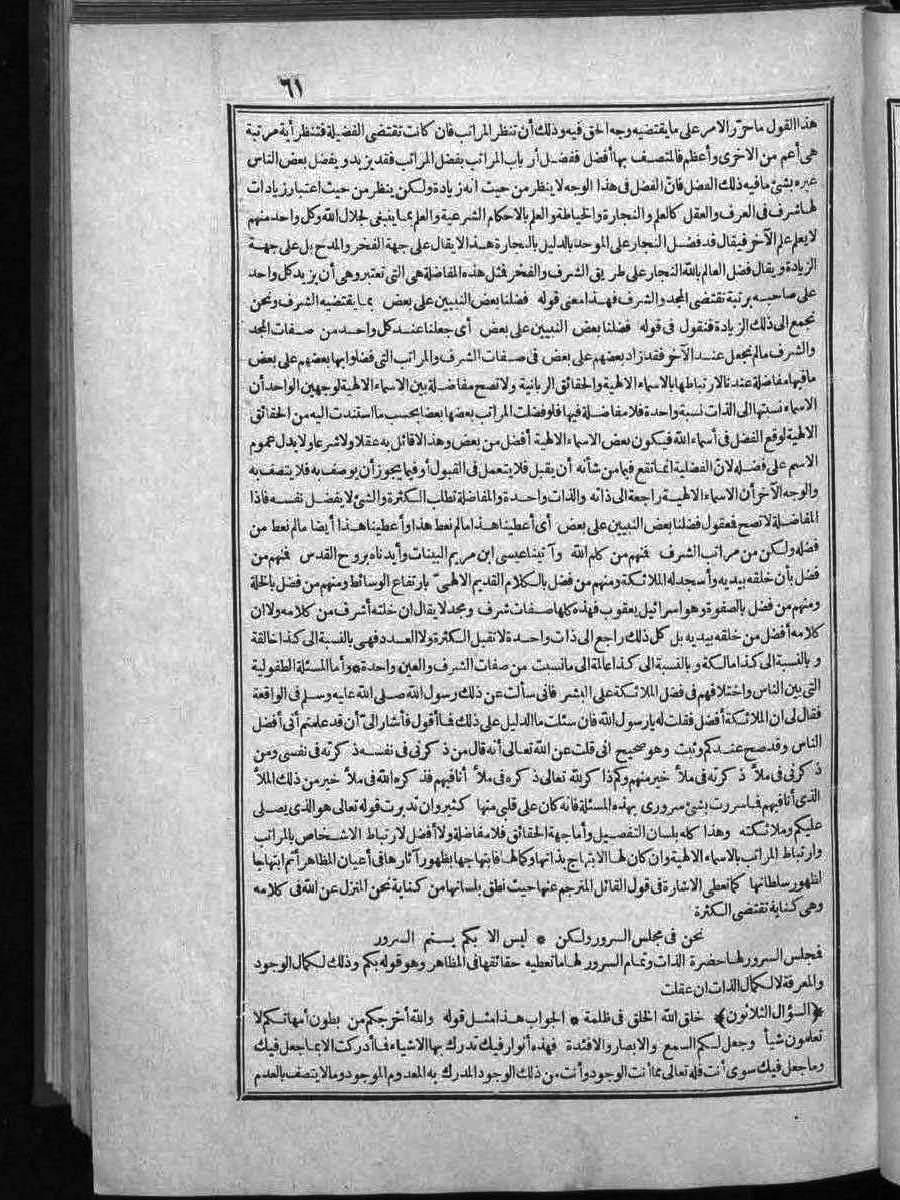 ٦١
هذا القول ما حرّر الامر على ما يقتضيه وجه الحق فيه وذلك أن تنظر المراتب فان كانت تقتضى الفضيلة فتنظر أية مرتبة
هى أعم من الاخرى وأعظم فالمتصف بها أفضل ففضل أرباب المراتب بفضل المراتب فقد يزيد ويفضل بعض الناس
غيره بشئ ما فيه ذلك الفضل فان الفضل فى هذا الوجه لا ينظر من حيث انه زيادة ولكن ينظر من حيث اعتبار زيادات
لها شرف فى العرف والعقل كالعلم والنجارة والخياطة والعلم بالاحكام الشرعية والعلم بما ينبغى لجلال الله وكل واحد منهم
لا يعلم علم الآخر فيقال قد فضل النجار على الموحد بالدليل بالنجارة هذا لا يقال على جهة الفخر والمدح بل على جهة
الزيادة ويقال فضل العالم بالله النجار على طريق الشرف والفخر فمثل هذه المفاضلة هى التى تعتبر وهى أن يزيد كل واحد
على صاحبه برتبة تقتضى المجد والشرف فهذا معنى قوله فضلنا بعض النبيين على بعض بما يقتضيه الشرف ونحن
نجمع الى ذلك الزيادة فنقول فى قوله فضلنا بعض النبيين على بعض أى جعلنا عند كل واحد من صفات المجد
والشرف ما لم نجعل عند الآخر فقد زاد بعضهم على بعض فى صفات الشرف والمراتب التى فضلوا بها بعضهم على بعض
ما فيها مفاضلة عندنا لارتباطها بالاسماء الالهية والحقائق الربانية ولا تصح مفاضلة بين الاسماء الالهية لوجهين الواحد أن
الاسماء نسبتها الى الذات نسبة واحدة فلا مفاضلة فيها فلو فضلت المراتب بعضها بعضا بحسب ما استندت اليه من الحقائق
الالهية لوقع الفضل فى أسماء الله فيكون بعض الاسماء الالهية أفضل من بعض وهذا لا قائل به عقلا ولا شرعا ولا يدل عموم
الاسم على فضله لانّ الفضلية انما تقع فيما من شأنه أن يقبل فلا يتعمل فى القبول أو فيما يجوز أن يوصف به فلا يتصف به
والوجه الآخر أن الاسماء الالهية راجعة الى ذاته والذات واحدة والمفاضلة تطلب الكثرة والشئ لا يفضل نفسه فاذا
المفاضلة لا تصح فعقول فضلنا بعض النبيين على بعض أى أعطينا هذا ما لم نعط هذا وأعطينا هذا أيضا ما لم نعط من
فضله ولكن من مراتب الشرف فمنهم من كلم الله وآتينا عيسى ابن مريم البينات وأيدناه بروح القدس فمنهم من
فضل بأن خلقه بيديه وأسجد له الملائكة ومنهم من فضل بالكلام القديم الالهىّ بارتفاع الوسائط ومنهم من فضل بالخلة
ومنهم من فضل بالصفوة وهو اسرائيل يعقوب فهذه كلها صفات شرف ومجد لا يقال ان خلته أشرف من كلامه ولا ان
كلامه أفضل من خلقه بيديه بل كل ذلك راجع الى ذات واحدة لا تقبل الكثرة ولا العدد فهى بالنسبة الى كذا خالقة
وبالنسبة الى كذا مالكة وبالنسبة الى كذا عالمة الى ما نسبت من صفات الشرف والعين واحدة * وأما المسئلة الطفولية
التى بين الناس واختلافهم فى فضل الملائكة على البشر فانى سألت عن ذلك رسول الله صلى الله عليه وسلم فى الواقعة
فقال لى ان الملائكة أفضل فقلت له يا رسول الله فان سئلت ما الدليل على ذلك فما أقول فأشار الىّ أن قد علمتم أنى أفضل
الناس وقد صح عندكم وثبت وهو صحيح انى قلت عن الله تعالى أنه قال من ذكرنى فى نفسه ذكرته فى نفسى ومن
ذكرنى فى ملأ ذكرته فى ملأ خير منهم وكم ذاكر لله تعالى ذكره فى ملأ أنا فيهم فذكره الله فى ملأ خير من ذلك الملأ
الذى أنا فيهم فما سررت بشئ سرورى بهذه المسئلة فانه كان على قلبى منها كثير وان تدبرت قوله تعالى هو الذى يصلى
عليكم وملائكته وهذا كله بلسان التفصيل وأما جهة الحقائق فلا مفاضلة ولا أفضل لارتباط الاشخاص بالمراتب
وارتباط المراتب بالاسماء الالهية وان كان لها الابتهاج بذاتها وكمالها فابتهاجها بظهور آثارها فى أعيان المظاهر أتم ابتهاجا
لظهور سلطانها كما تعطى الاشارة فى قول القائل المترجم عنها حيث نطق بلسانها من كناية نحن المنزل عن الله فى كلامه
وهى كناية تقتضى الكثرة
نحن فى مجلس السرور ولكن * ليس الا بكم يـتم السرور
فمجلس السرور لها حضرة الذات وتمام السرور لها ما تعطيه حقائقها فى المظاهر وهو قوله بكم وذلك لكمال الوجود
والمعرفة لا لكمال الذات ان عقلت
﴿السؤال الثلاثون﴾ خلق الله الخلق فى ظلمة * الجواب هذا مثل قوله والله أخرجكم من بطون أمهاتكم لا
تعلمون شيأ وجعل لكم السمع والابصار والافئدة فهذه أنوار فيك تدرك بها الاشياء فما أدركت الا بما جعل فيك
وما جعل فيك سوى أنت فله تعالى مما أنت الوجود وأنت من ذلك الوجود المدرك به المعدوم الموجود وما لا يتصف بالعدم